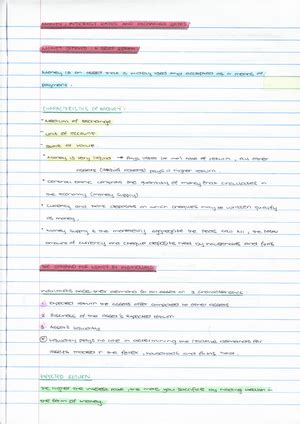 MONEY, INTEREST RATES AND EXCHANGE RATES
MONEY DEFINED: A BRIEF REVIEW
Money is an asset that is widely used and accepted as a means of
payment.
CHARACTERISTICS OF MONEY:
* Medium of exchange
* Unit of account
* Store of value
* Money is very liquid → Pays little or no rate of return, all other
assets (illiquid assets) pays a higher return
* Central banks control the quantity of money that circulates in
the economy (money supply)
* Currency and bank deposits on which cheques may be written qualify
as money.
* Money supply is the monetary aggregate the
amount of currency and cheque deposits held by households and firms
THE DEMAND FOR MONEY BY INDIVIDUALS
Individuals base their demand for an asset on 3 characteristics
1 Expected return the assets offer compared to other assets
2 Riskiness of the asset's expected return
3 Asset's liquidity
Liquidity plays no role in determining the relative demands for
assets traded in the forex, households and firms
EXPECTED RETURN
The higher the interest rate, the more you sacrifice by holding wealth in
the form of money.